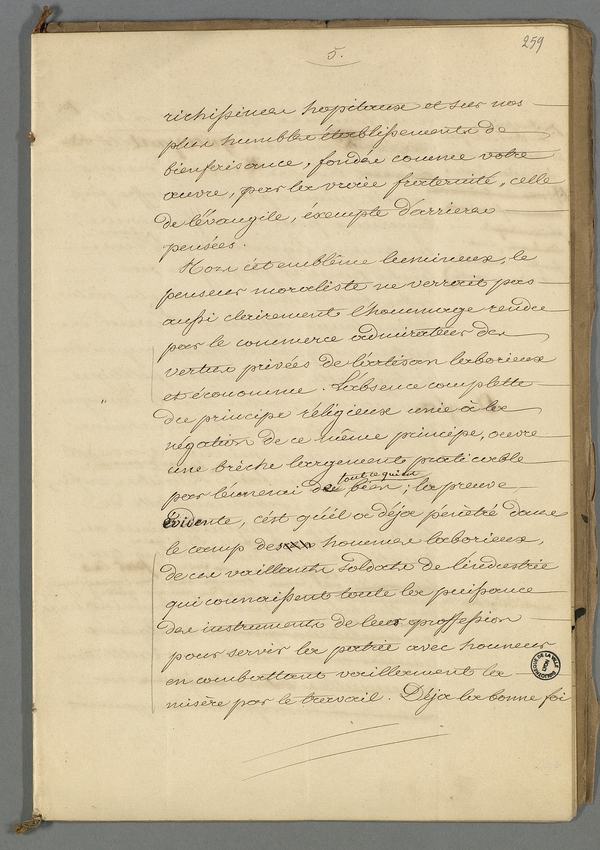 5.
259
richissimes hopitaux et sur nos
plus humbles établissements de
bienfaisance, fondés comme votre
œuvre, par la vraie fraternité, celle
de l'évangile, éxempte d'arrieres
pensées.
Hors cet emblême lumineux, le
penseur moraliste ne verrait pas
aussi clairement l'hommage rendu
par le commerce admirateur des
vertus privées de l'artisan laborieux
et économme. L'absence complette
du principe réligieux unie à la
négation de ce même principe, ouvre
une brèche largement praticable
tout ce qui est
par l'énnemi de bien ; la preuve
évidente, c'est qu'il a déja pénètré dans
le camp des hommes laborieux,
de ces vaillants soldats de l'industrie
qui connaissent toute la puissance
des instruments de leur proffession
pour servir la patrie avec honneur
en combattant vaillamment la
misère par le travail. Déja la bonne foi